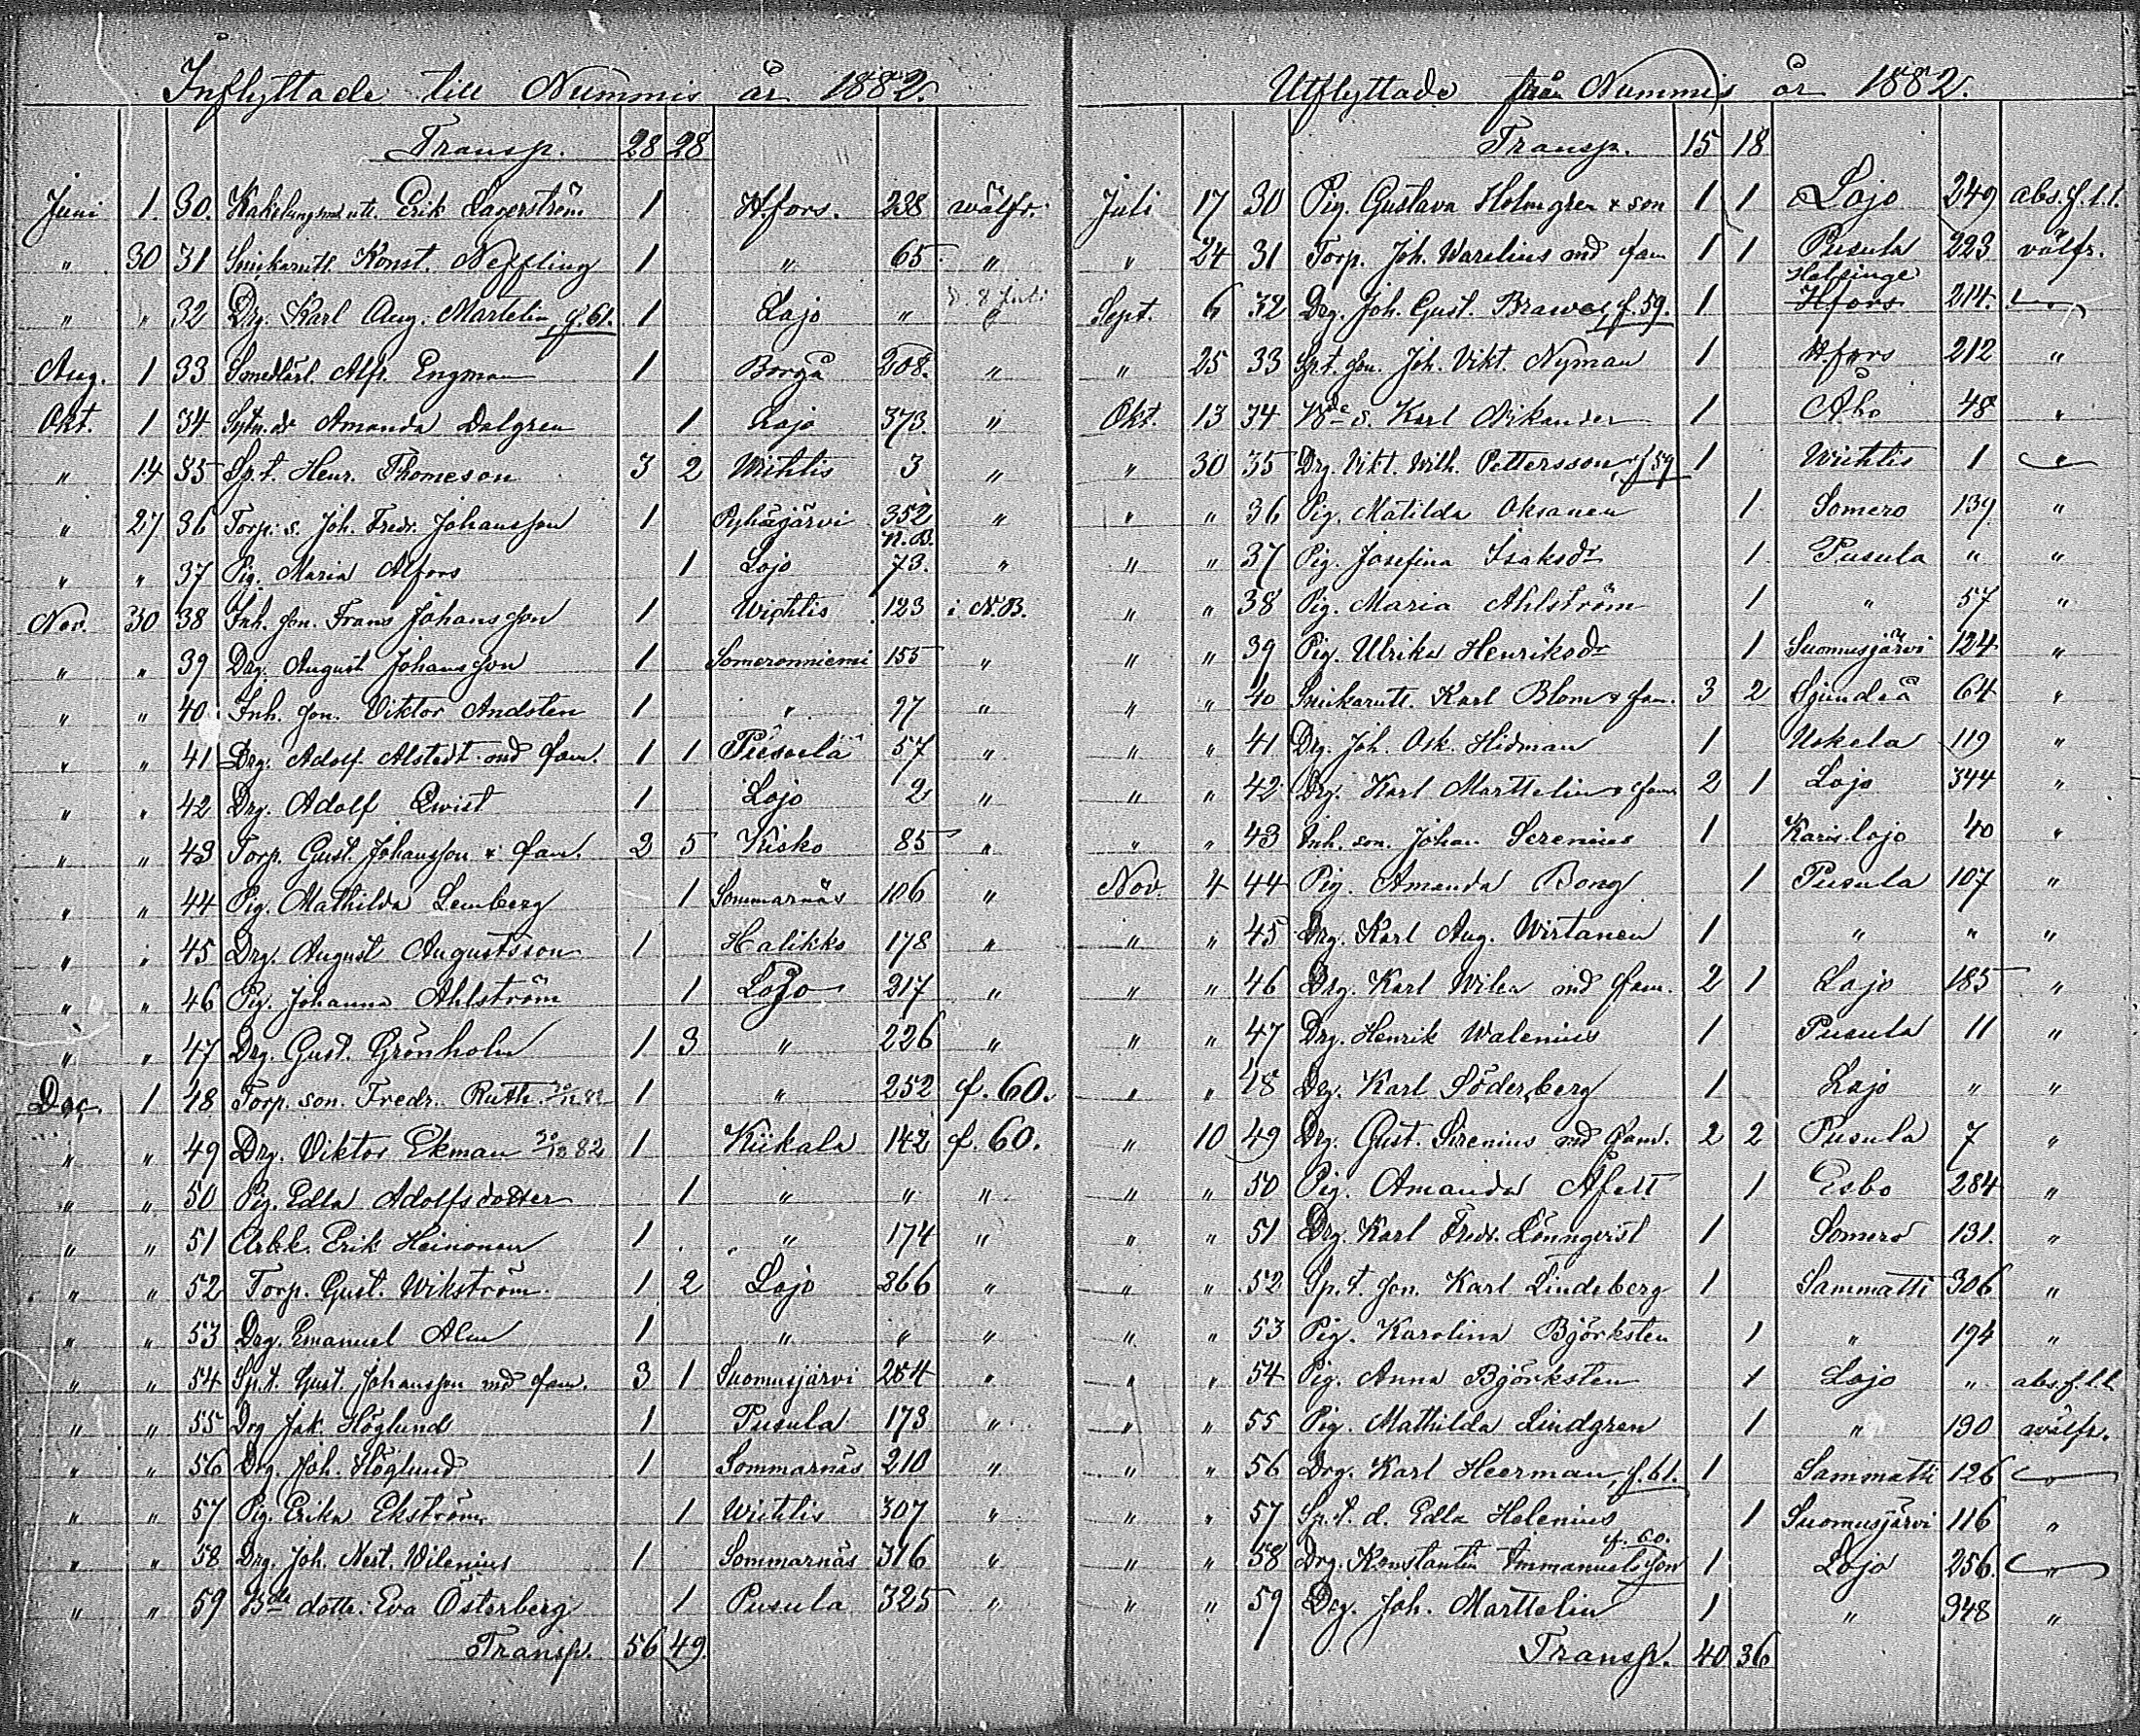 Inflyttade till Nummis år 1882.
Transp. 28 28
Juni 1. 30. Erik Lagerström 1 H.fors. 238 wälfr.
" 30 31 Snickareutl. Konst. Neffling 1 " 65 "
d. 8 Juli
" " 32 Drg. Karl Aug. Martelin, f. 61. 1 Lojo " "
Aug. 1 33 Smedlärl. Alfr. Engman 1 Borgå 208. "
Okt. 1 34 Amanda Dalgren 1 Lojo 373. "
" 14 35 Sp.t. Henr. Thomeson 3 2 Wichtis 3 "
" 27 36 Torp. s. Joh. Fredr. Johansson 1 Pyhäjärvi 352 "
N.B.
" " 37 Pig. Maria Alfors 1 Lojo 73. "
Nov. 30 38 Inh. son. Frans Johansson 1 Wichtis 123 i N.B.
" " 39 Drg. August Johansson 1 Someronniemi 155 "
" " 40 Inh. son. Viktor Andsten 1 " 97 "
" " 41 Drg. Adolf Alstedt md fam. 1 1 Pusula 57 "
" " 42 Drg. Adolf Qwist 1 Lojo 2 "
" " 43 Torp. Gust. Johansson & fam. 2 5 Kisko 85 "
" " 44 Pig. Mathilda Lemberg 1 Sommarnäs 106 "
" " 45 Drg. August Augustsson 1 Halikko 178 "
" " 46 Pig. Johanna Ahlström 1 Lojo 217 "
" " 47 Drg. Gust. Grönholm 1 3 " 226 "
Dec. 1 48 Torp. son. Fredr. Ruth 1 " 252 f. 60.
" " 49 Drg. Viktor Ekman 30/12 82 1 Kiikala 142 f. 60.
" " 50 Pig. Edla Adolfsdotter 1 " " "
" " 51 Arbk. Erik Heinonen 1 " 174 "
" " 52 Torp. Gust. Wikström 1 2 Lojo 266 "
" " 53 Drg. Emanuel Alm 1 " " "
" " 54 Sp.t. Gust. Johansson md fam. 3 1 Suomusjärvi 254 "
" " 55 Drg Jak. Höglund 1 Pusula 173 "
" " 56 Drg. Joh. Höglund 1 Sommarnäs 210 "
" " 57 Pig. Erika Ekström 1 Wichtis 307 "
" " 58 Drg. Joh. Nest. Wilenius 1 Sommarnäs 316 "
" " 59 Bde dotte. Eva Österberg 1 Pusula 325 "
Transp. 56 49.
Utflyttade från Nummis år 1882.
Transp. 15 18
Juli 17 30 Pig. Gustava Holmgren & son 1 1 Lojo 249 abs. f. l. l.
" 24 31 Torp. Joh. Warelius md fam 1 1 Pusula 223 välfr.
Helsinge
Sept. 6 32 Drg. Joh. Gust. Brawer, f. 59. 1 H.fors 214. "
" 25 33 Sp.t. son. Joh. Vikt. Nyman 1 H.fors 212 "
Okt. 13 34 Bde s. Karl Nikander 1 Åbo 48 "
" 30 35 Drg. Vikt. Wilh. Pettersson, f 59 1 Wichtis 1 "
" " 36 Pig. Matilda Oksanen 1 Somero 139 "
" " 37 Pig. Josefina Isaksdr 1 Pusula " "
" " 38 Pig. Maria Ahlström 1 " 57 "
" " 39 Pig. Ulrika Henriksdr 1 Suomusjärvi 124 "
" " 40 Snickareutl. Karl Blom & fam. 3 2 Sjundeå 64 "
" " 41 Drg. Joh. Osk. Hidman 1 Uskela 119 "
" " 42 Drg. Karl Marttelin & fam 2 1 Lojo 344 "
" " 43 Inh. son. Johan Serenius 1 Karis lojo 40 "
Nov. 4 44 Pig. Amanda Bong 1 Pusula 107 "
" " 45 Drg. Karl Aug. Wirtanen 1 " " "
" " 46 Drg. Karl Wilen md fam. 2 1 Lojo 185 "
" " 47 Drg. Henrik Walenius 1 Pusula 11 "
" " 48 Drg. Karl Söderberg 1 Lojo " "
" 10 49 Drg. Gust. Sirenius md fam. 2 2 Pusula 7 "
" " 50 Pig. Amanda Åfelt 1 Esbo 284 "
" " 51 Drg. Karl Fredr. Lönnqvist 1 Somero 131. "
" " 52 Sp.t. son. Karl Lindeberg 1 Sammatti 306 "
" " 53 Pig. Karolina Björksten 1 " 194 "
" " 54 Pig. Anna Björksten 1 Lojo " abs. f. l. l.
" " 55 Pig. Mathilda Lindgren 1 " 190 wälfr.
" " 56 Drg. Karl Heerman, f. 61. 1 Sammatti 126 "
" " 57 Sp.t. d. Edla Helenius 1 Suomusjärvi 116 "
f. 60.
" " 58 Drg. Konstantin Immanuelsson 1 Lojo 256. "
" " 59 Drg. Joh. Marttelin 1 " 348 "
Transp. 40 36